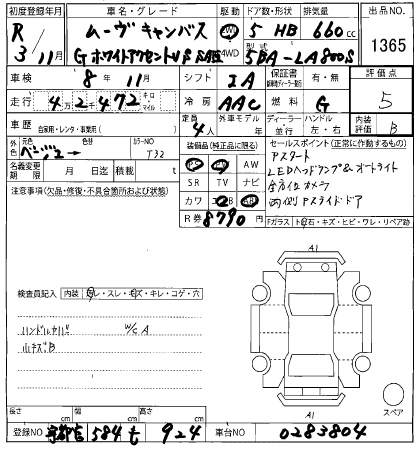 初度登録年月 車名・グレード 駆動 ドア数・形状 排気量 出品NO.
R 3/11月 ムーヴキャンバス 2WD 5 HB 660cc 1365
G ホワイトアクセントVS SAⅢ 4WD 型式 5BA-LA800S
車検 8年 11月 シフト IA 保証書 有・無 評価点
走行 4万2千472 キロ・マイル 冷房 AAC 燃料 G 5
車歴 自家用・レンタ・事業用( ) 定員 4人 外車モデル 年 ディーラー 並行 ハンドル 左・右 内装評価 B
外色 元色 ベージュ 色替 カラーNO T32
名義変更期限 月 日迄 積載 t
装備品(純正品に限る)
PS PW AW
SR TV ナビ
カワ エアB ABS
R券 8790円
セールスポイント(正常に作動するもの)
Pスタート
LEDヘッドランプ&オートライト
全方位カメラ
両側Pスライドドア
Fガラス トビ石・キズ・ヒビ・ワレ・リペア跡
注意事項(欠品・修復・不具合箇所および状態)
検査員記入 内装 ヨゴレ・スレ・キズ・キレ・コゲ・穴
ハンドルカバー W/C A
小キズB
A1
A1
スペア
長さ cm 幅 cm 高さ cm
登録NO 584 924 車台NO 0283804